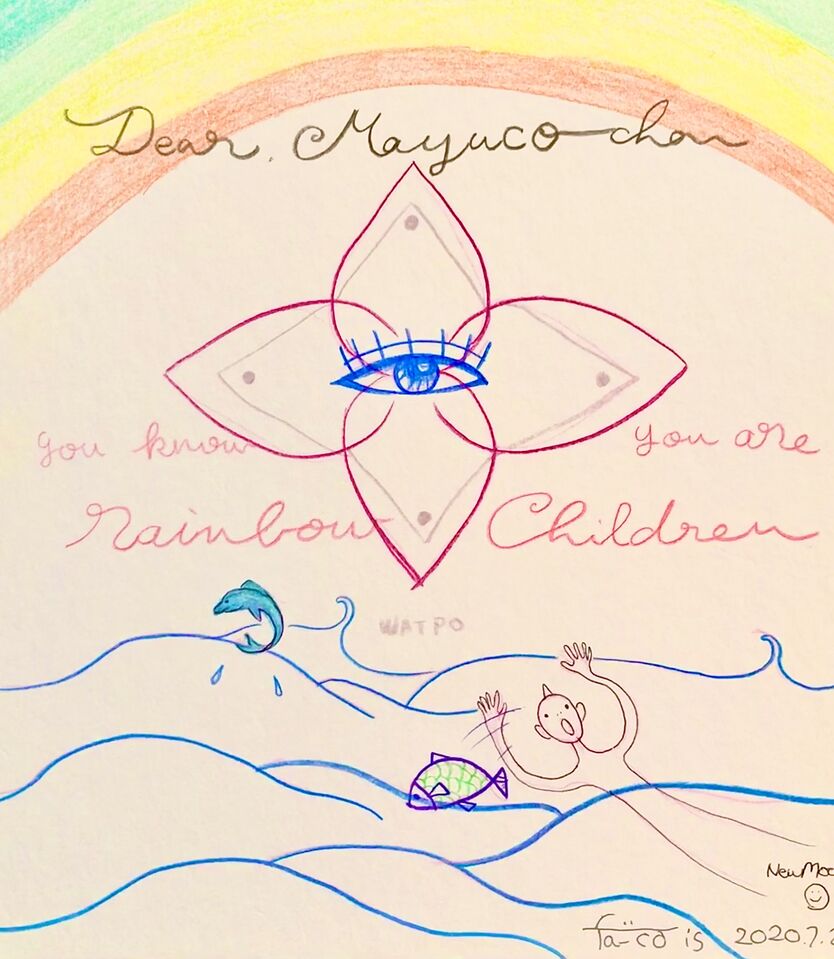 Dear, Mayuco-chan
you know you are
rainbow Children
WATPO
New Moo
fa-co is 2020.7.2